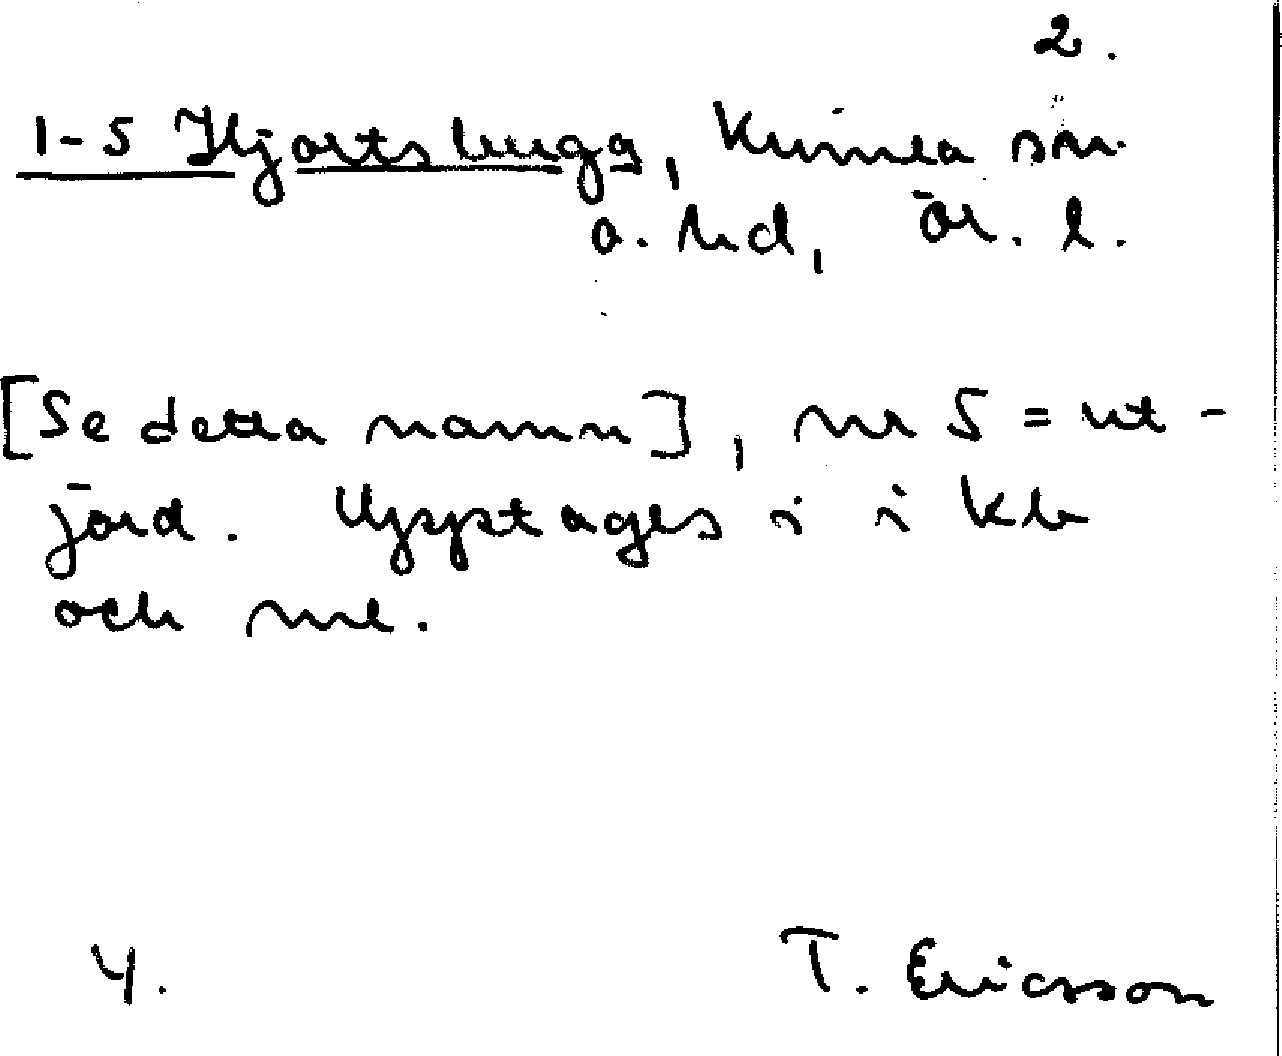 2.
1-5 Hjortsbergа, Kumla sn.
a. hd, Ör. l.
[Se detta namn], nr 5 = ut-
jord. Upptages i
och
4.
T. Ericsson